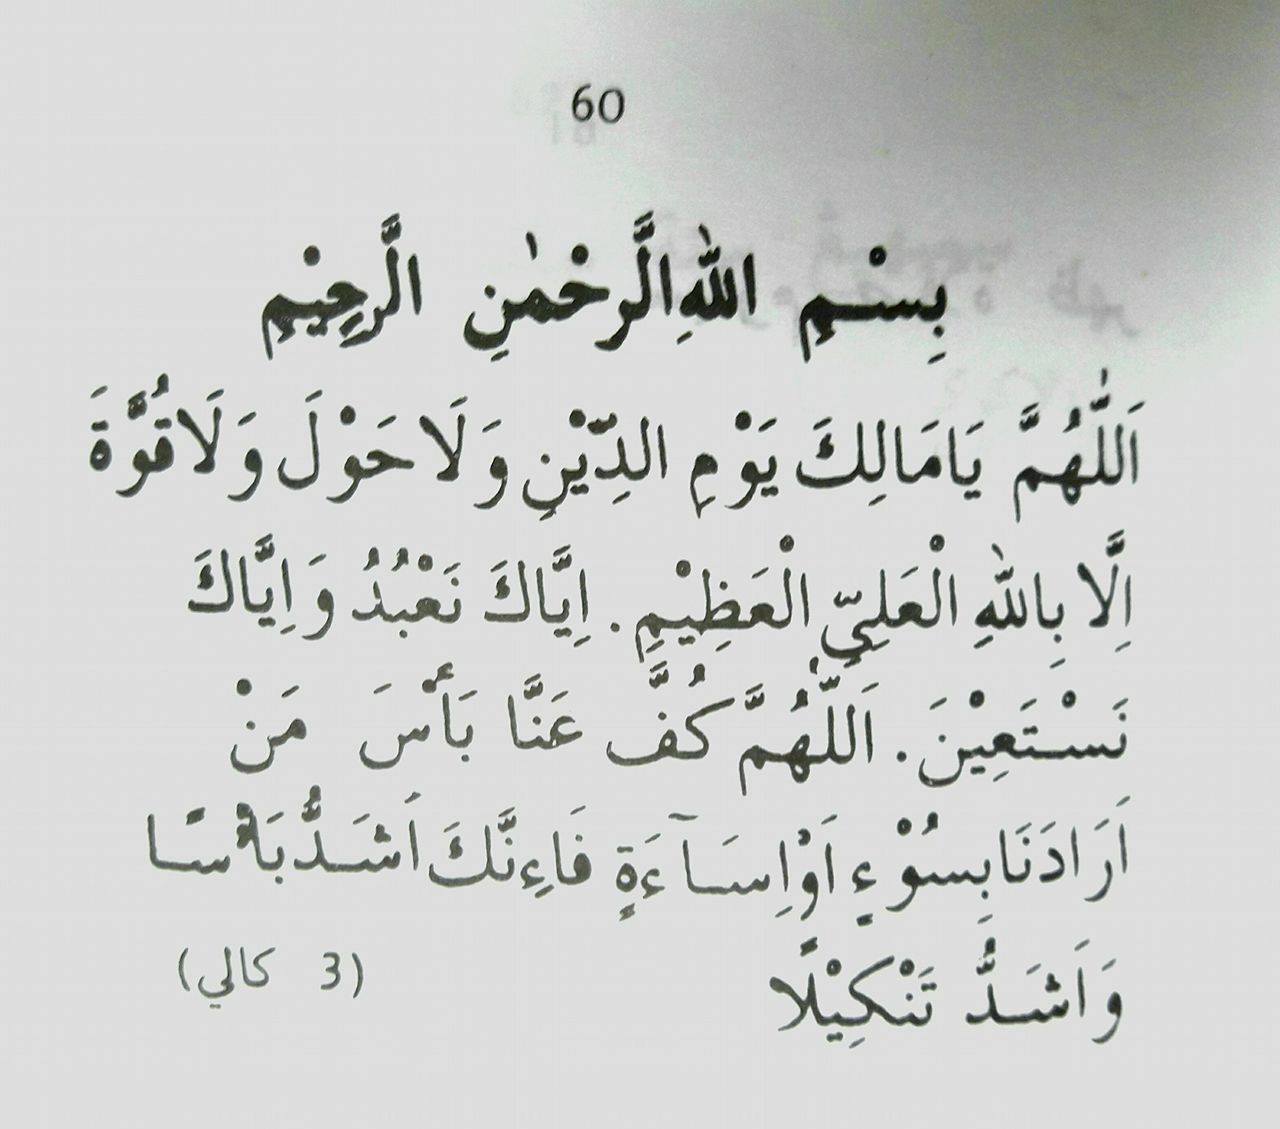 60
بِسْمِ اللهِ الَّرحْمٰنِ الَّرحِيْمِ
اَللّٰهُمَّ يَامَالِكَ يَوْمِ الدِّيْنِ وَلَا حَوْلَ وَلَاقُوَّةَ
اِلَّا بِاللهِ الْعَلِيِّ الْعَظِيْمِ. اِيَّاكَ نَعْبُدُ وَاِيَّاكَ
نَسْتَعِيْنَ. اَللّٰهُمَّ كُفَّ عَنَّا بَأْسَ مَنْ
اَرَادَنَا بِسُوْءٍ اَوْاِسَآءَةٍ فَاءِنَّكَ اَشَدُّ بَأْسًا
وَاَشَدُّ تَنْكِيْلًا (3 كالي)